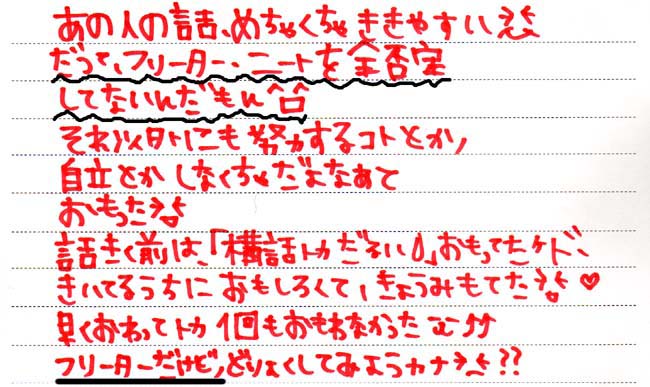 あの人の話、めちゃくちゃききやすい
だって、フリーター、ニートを全否定
してないんだもん^口^
それ以外にも努力するコトとか、
自立とかしなくちゃだよなあて
おもった
話きく前は、「横話トカだるい」おもってたケド、
きいてるうちにおもしろくて、きょうみもてた♡
早くおわってトカ1回もおもわなかった
フリーターだけど、どりょくしてみようカナ??